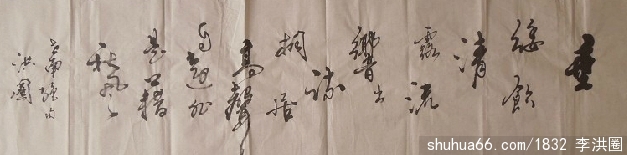 垂
緌飲
清
露流
響出
疏
桐居
高聲
自遠非
是藉
秋風
洪圈
shuhua66.com/1832 李洪圈